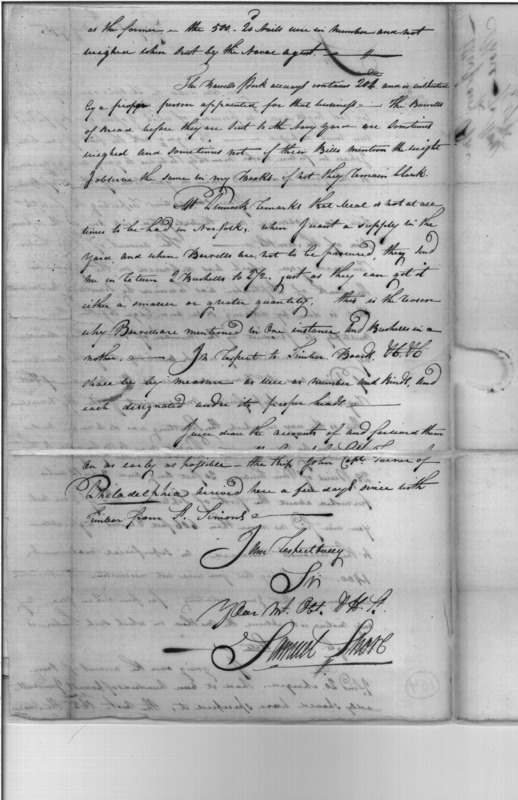 as the former – the 500. 20 Nails were in number and not
weighed when sent by the Navy Agent.
The Barrells Pork always contains 200 lbs and is inspected
by a proper person appointed for that business – The Barrells
of Bread before they are sent to the Navy Yard are sometimes
weighed and sometimes not if their Bills mention the weight
I observe the same in my Books. if not they remain blank.
Mr Pennock remarks that Meal is not at all
times to be had in Norfolk, when I want a supply in the
Yard and when Barrells are not to be procured, they send
me in return 2 Bushells to 2 1/2, just as they can get it
either a smaller or greater quantity, this is the reason
why Barrells are mentioned in One instance and Bushells in a
nother. – In respect to Timber Boards &c. &c
shall be by measure as well as number and kinds, and
each designated under its proper heads –
I will draw the accounts of and forward them
on as early as possible – the Ship John Capt. Turner of
Philadelphia arrived here a few days since with
Timber from St. Simons –
I am respectfully
Sir
Your Mt. Obt. H. St.
Samuel Snove